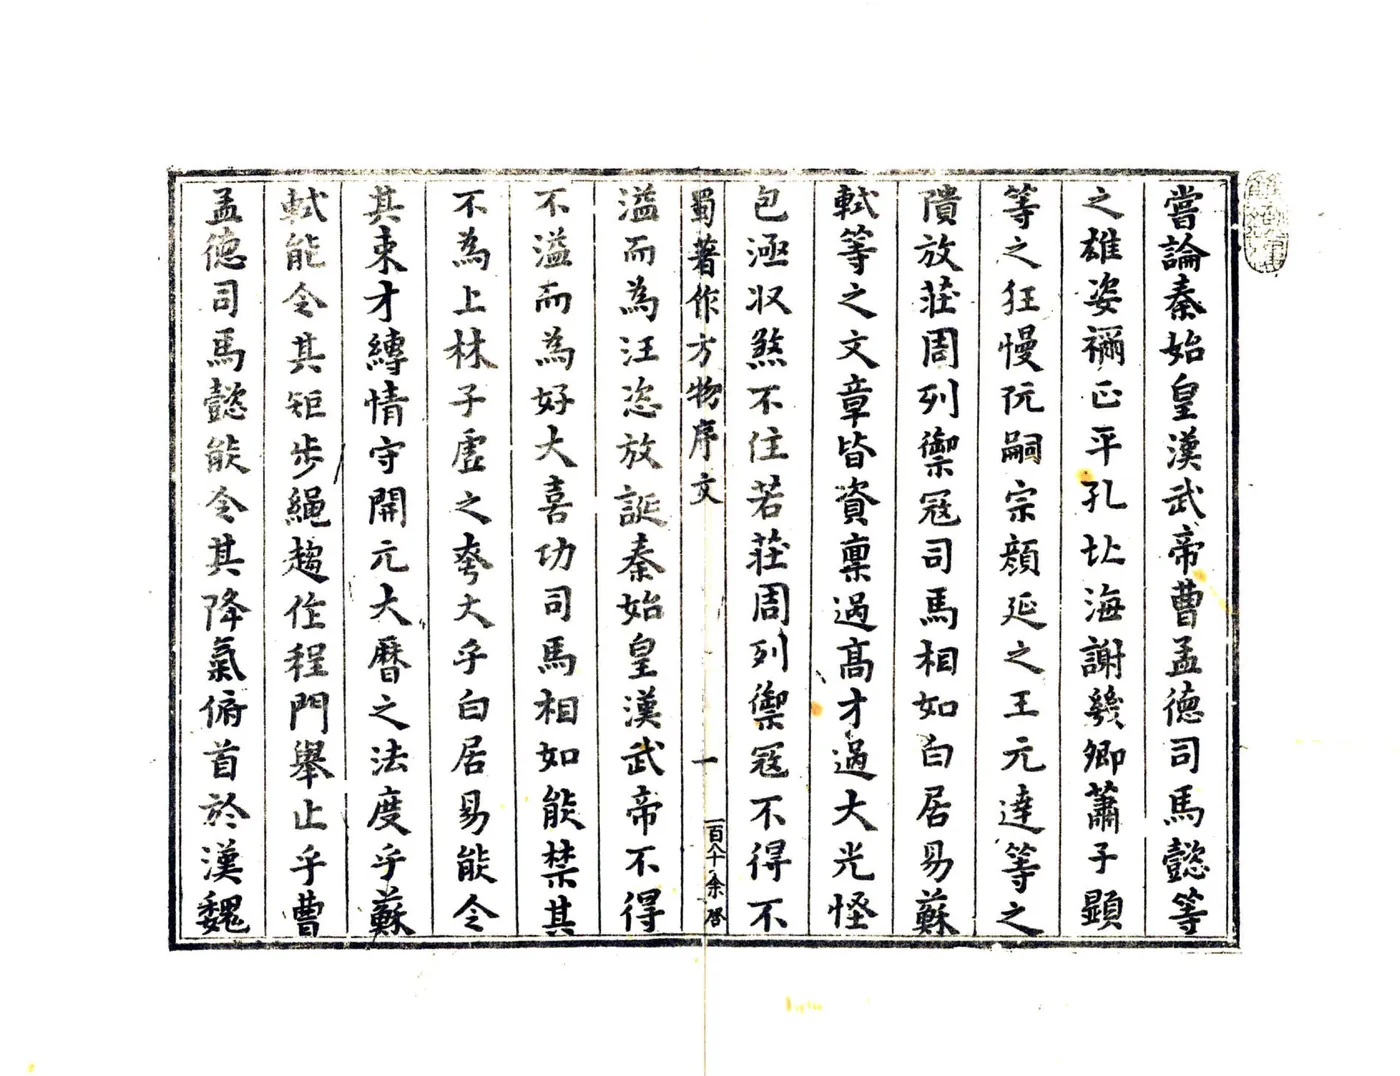 嘗論秦始皇漢武帝曹孟德司馬懿等
之雄姿禰正平孔北海謝幾卿蕭子顯
等之狂慢阮嗣宗顏延之王元達等之
隤放莊周列禦冦司馬相如白居易蘇
軾等之文章皆資稟過高才過大光怪
包極收煞不住若莊周列禦冦不得不
蜀著作方物序文
一
溢而為汪恣放誕秦始皇漢武帝不得
不溢而為好大喜功司馬相如能禁其
不為上林子虛之夸大乎白居易能令
其束才縛情守開元大曆之法度乎蘇
軾能令其矩步繩趨作程門舉止乎曹
孟德司馬懿能令其降氣俯首於漢魏